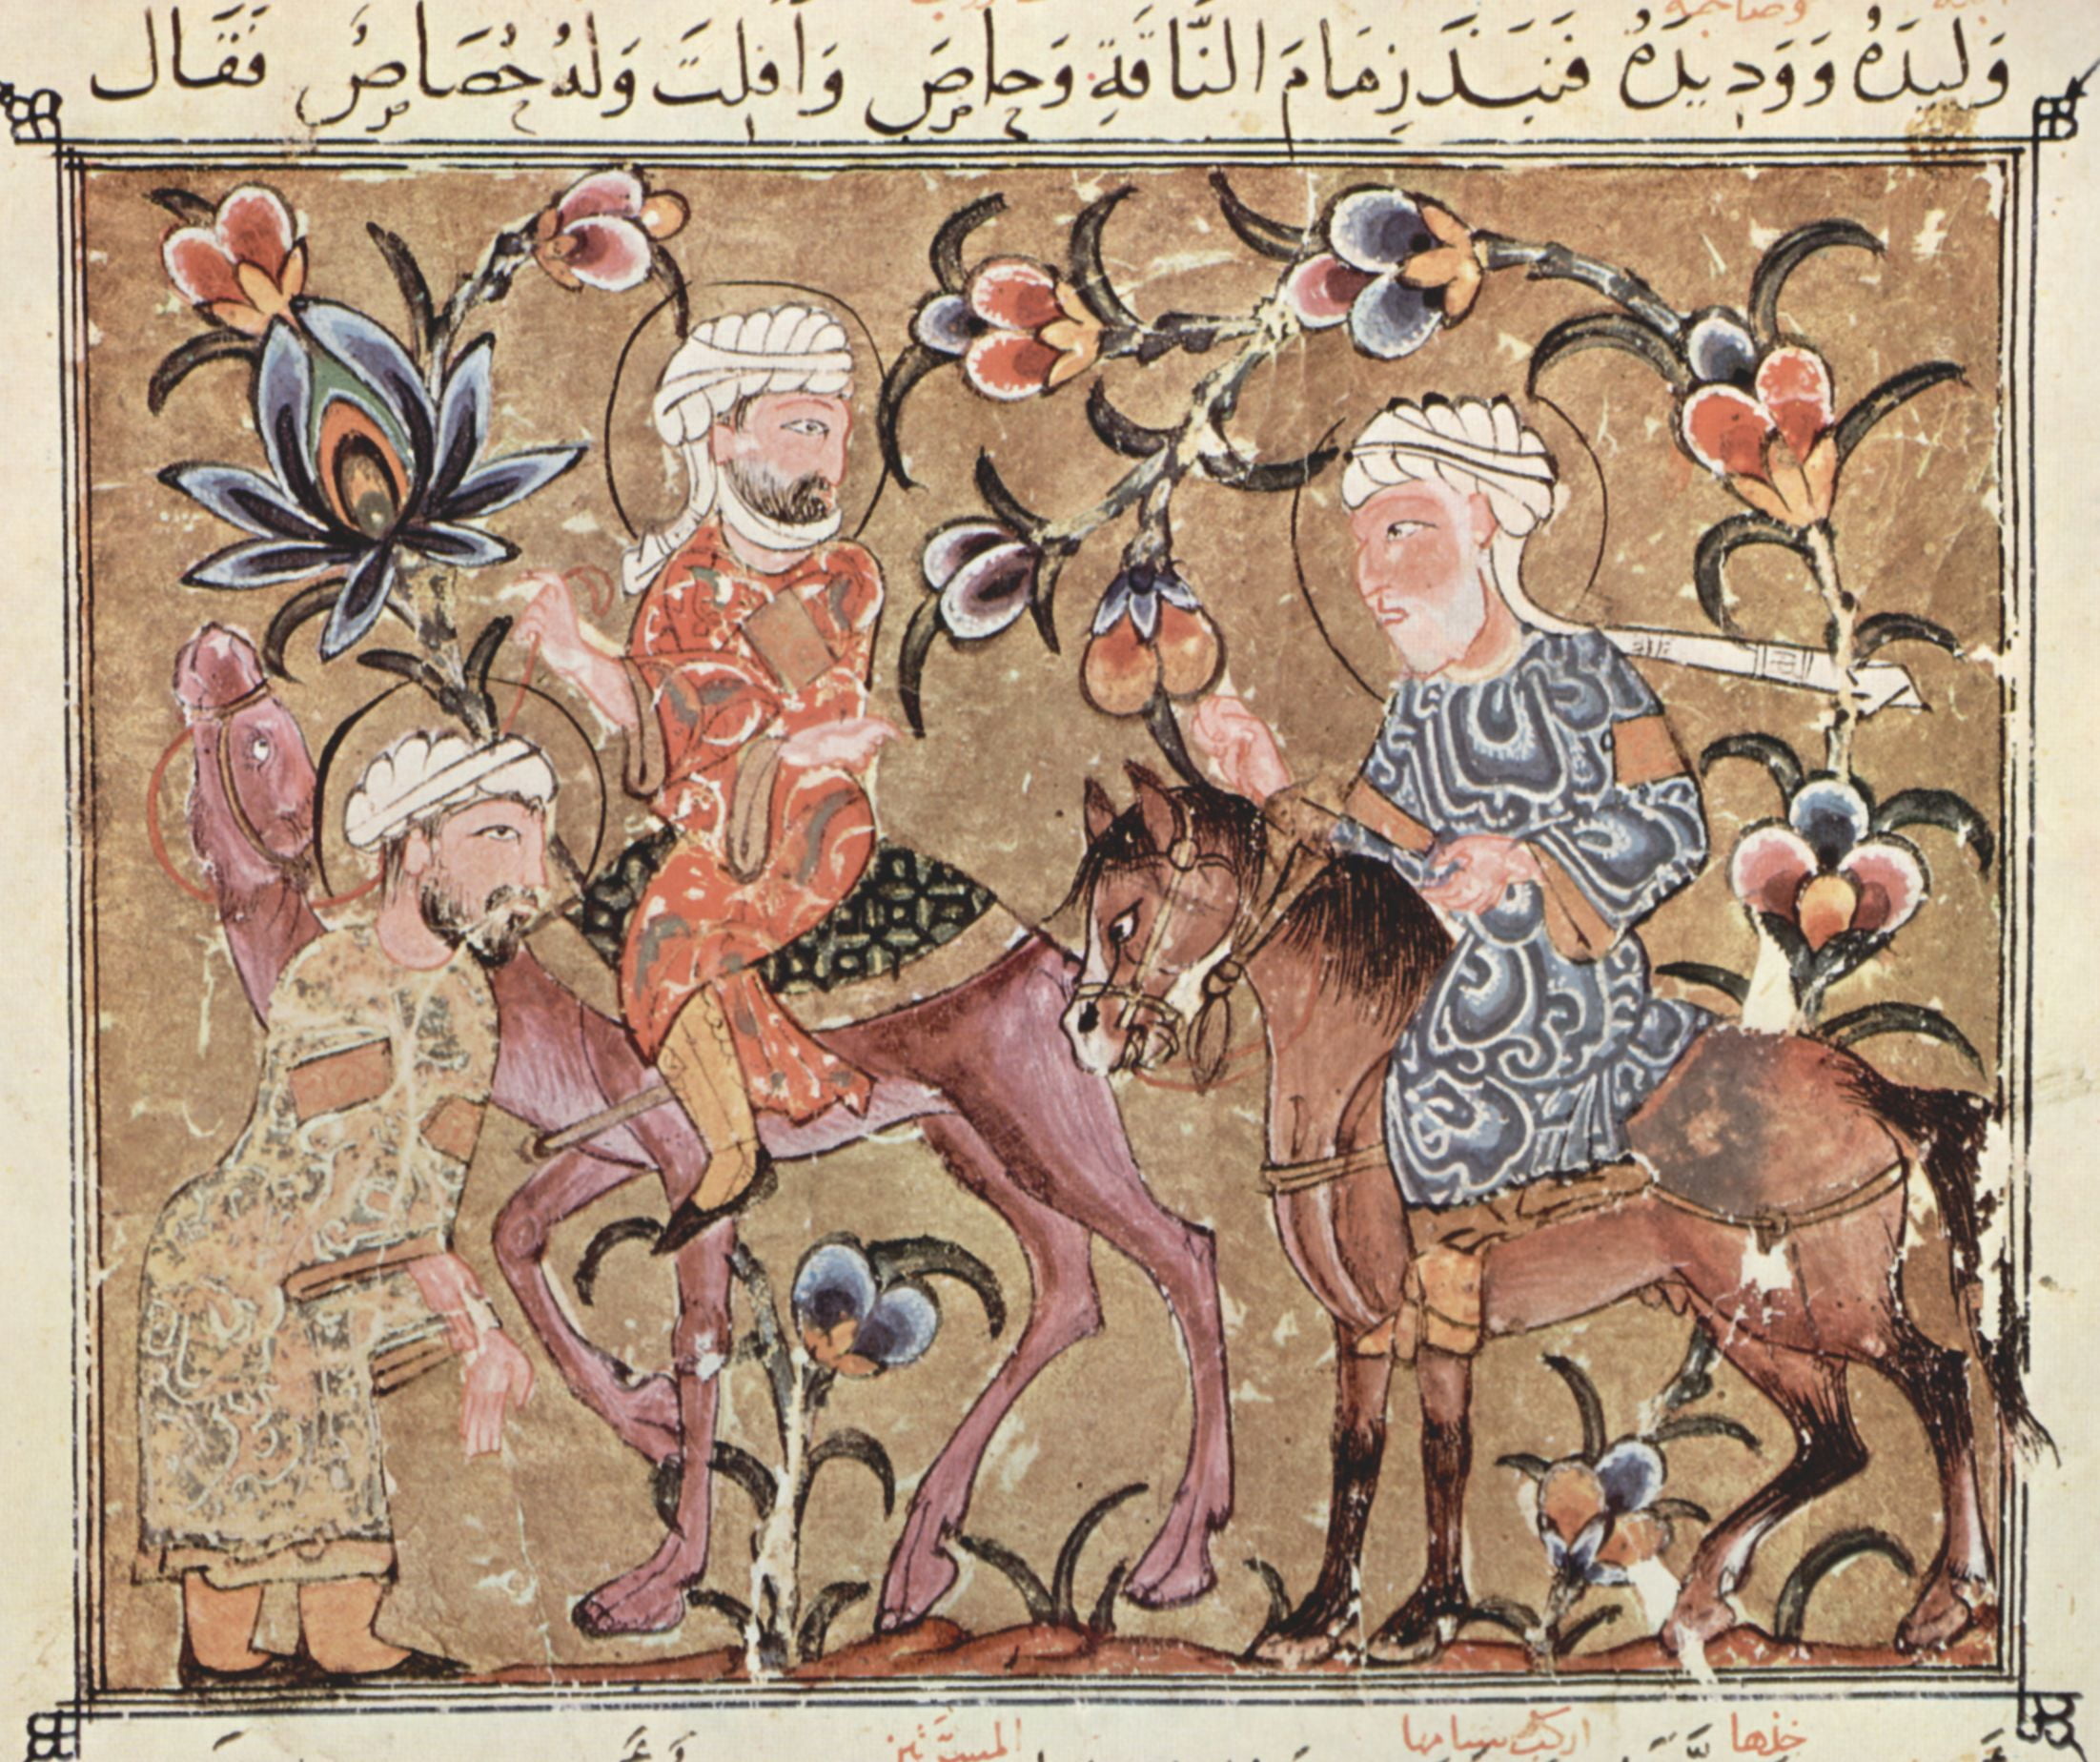 وَلِيدَهُ وَوَدِيدَهُ فَنَبَذَ زِمَامَ النَّاقَةِ وَحاصَ وَأَفلَتَ وَلهُ حُصَاصٌ فَقَال
خذها اركب سنامها